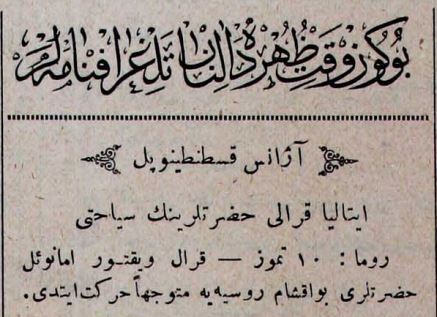 بوكون وقت ظهرده النان تلغرافنامه لر
آژانس قسطنطينوپل
ايتاليا قرالى حضرتلرينك سياحتى
روما : ١٠ تموز — قرال ويقتور امانوئل
حضرتلرى بواقشام روسيه يه متوجهاً حركت ايتدى.